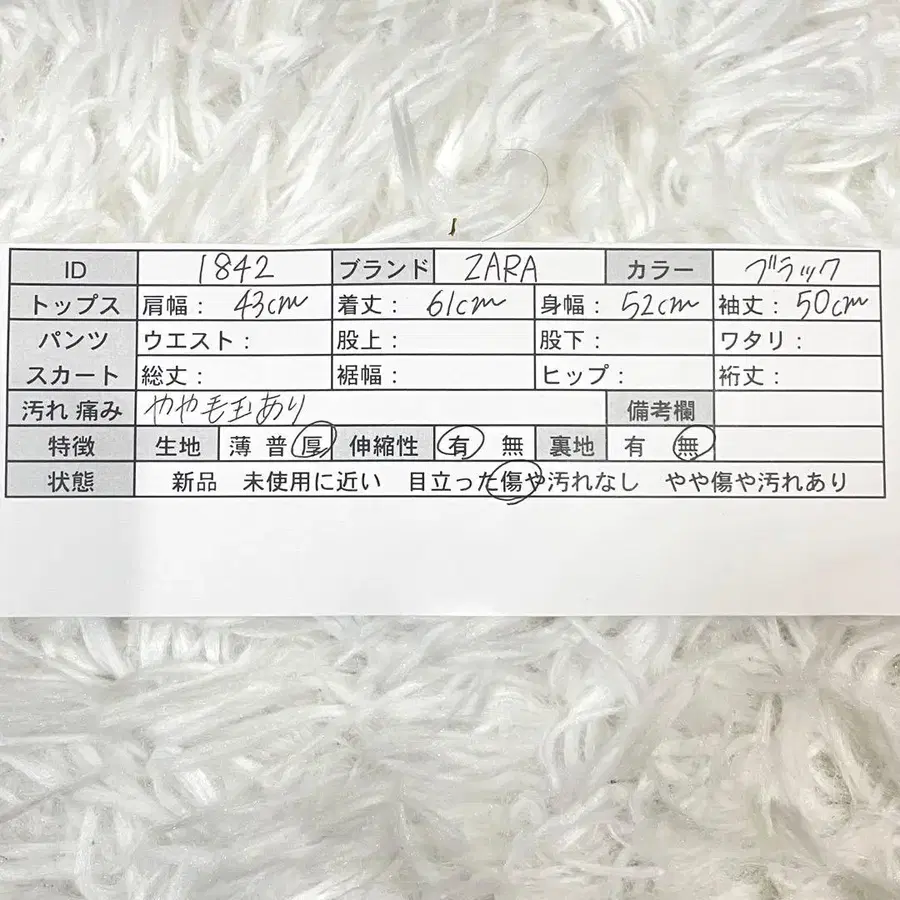 ID 1842 ブランド ZARA カラー ブラック
トップス 肩幅： 43cm 着丈： 61cm 身幅： 52cm 袖丈： 50cm
パンツ ウエスト： 股上： 股下： ワタリ：
スカート 総丈： 裾幅： ヒップ： 裄丈：
汚れ 痛み やや毛玉あり 備考欄
特徴 生地 薄 普 厚 伸縮性 有 無 裏地 有 無
状態 新品 未使用に近い 目立った傷や汚れなし やや傷や汚れあり